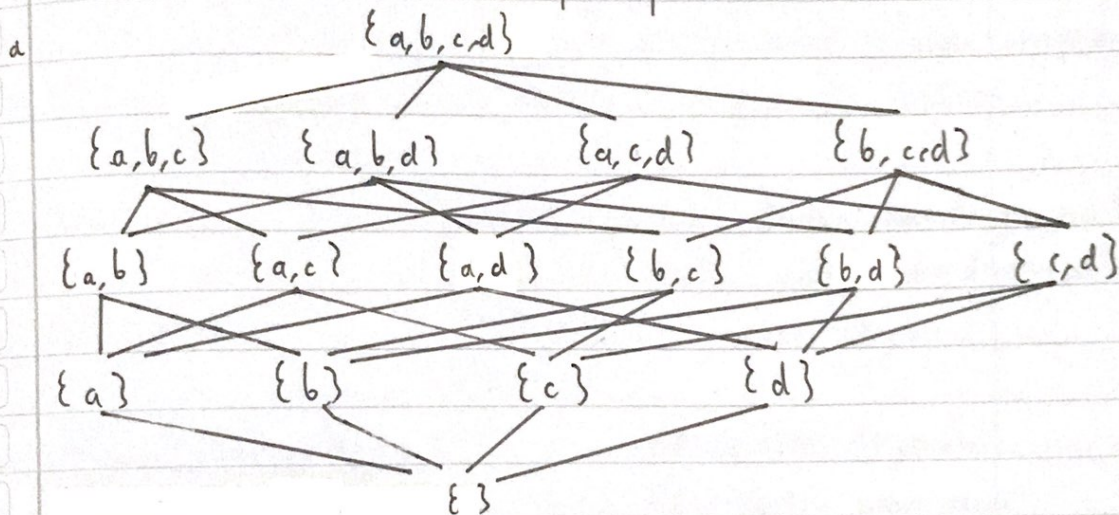 a
{a,b,c,d}
{a,b,c} {a,b,d} {a,c,d} {b,c,d}
{a,b} {a,c} {a,d} {b,c} {b,d} {c,d}
{a} {b} {c} {d}
{ }